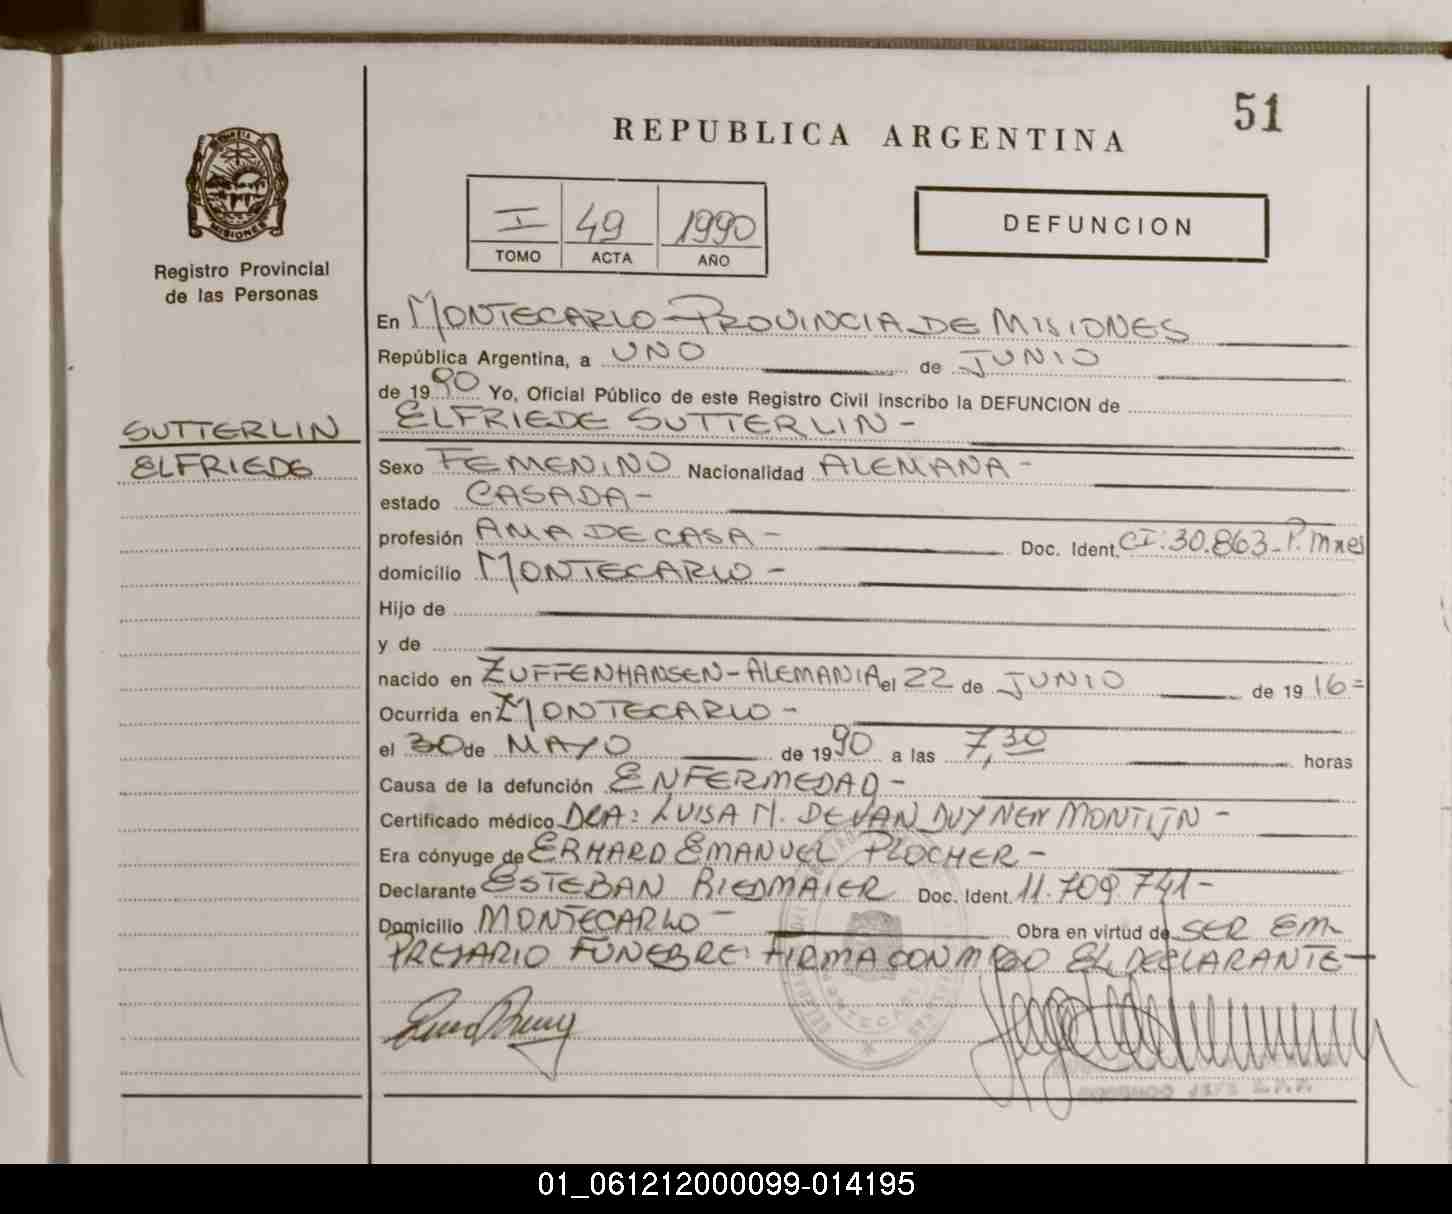 51
REPUBLICA ARGENTINA
MISIONES
Registro Provincial
de las Personas
I 49 1990
TOMO ACTA AÑO
DEFUNCION
SUTTERLIN
ELFRIEDE
En MONTECARLO - PROVINCIA DE MISIONES
República Argentina, a UNO de JUNIO
de 1990 Yo, Oficial Público de este Registro Civil inscribo la DEFUNCION de
ELFRIEDE SUTTERLIN -
Sexo FEMENINO Nacionalidad ALEMANA -
estado CASADA -
profesión AMA DE CASA - Doc. Ident. CI: 30.863 - P. Mnes
domicilio MONTECARLO -
Hijo de
y de
nacido en ZUFFENHANSEN - ALEMANIA el 22 de JUNIO de 1916 =
Ocurrida en MONTECARLO -
el 30 de MAYO de 1990 a las 7,30 horas
Causa de la defunción ENFERMEDAD -
Certificado médico DRA: LUISA M. DE VAN DUYNEN MONTIJN -
Era cónyuge de ERHARD EMANUEL PLOCHER -
Declarante ESTEBAN RIEDMAIER Doc. Ident. 11.709.741 -
Domicilio MONTECARLO - Obra en virtud de SER EM-
PRESARIO FUNEBRE: FIRMA CONMIGO EL DECLARANTE -
01_061212000099-014195